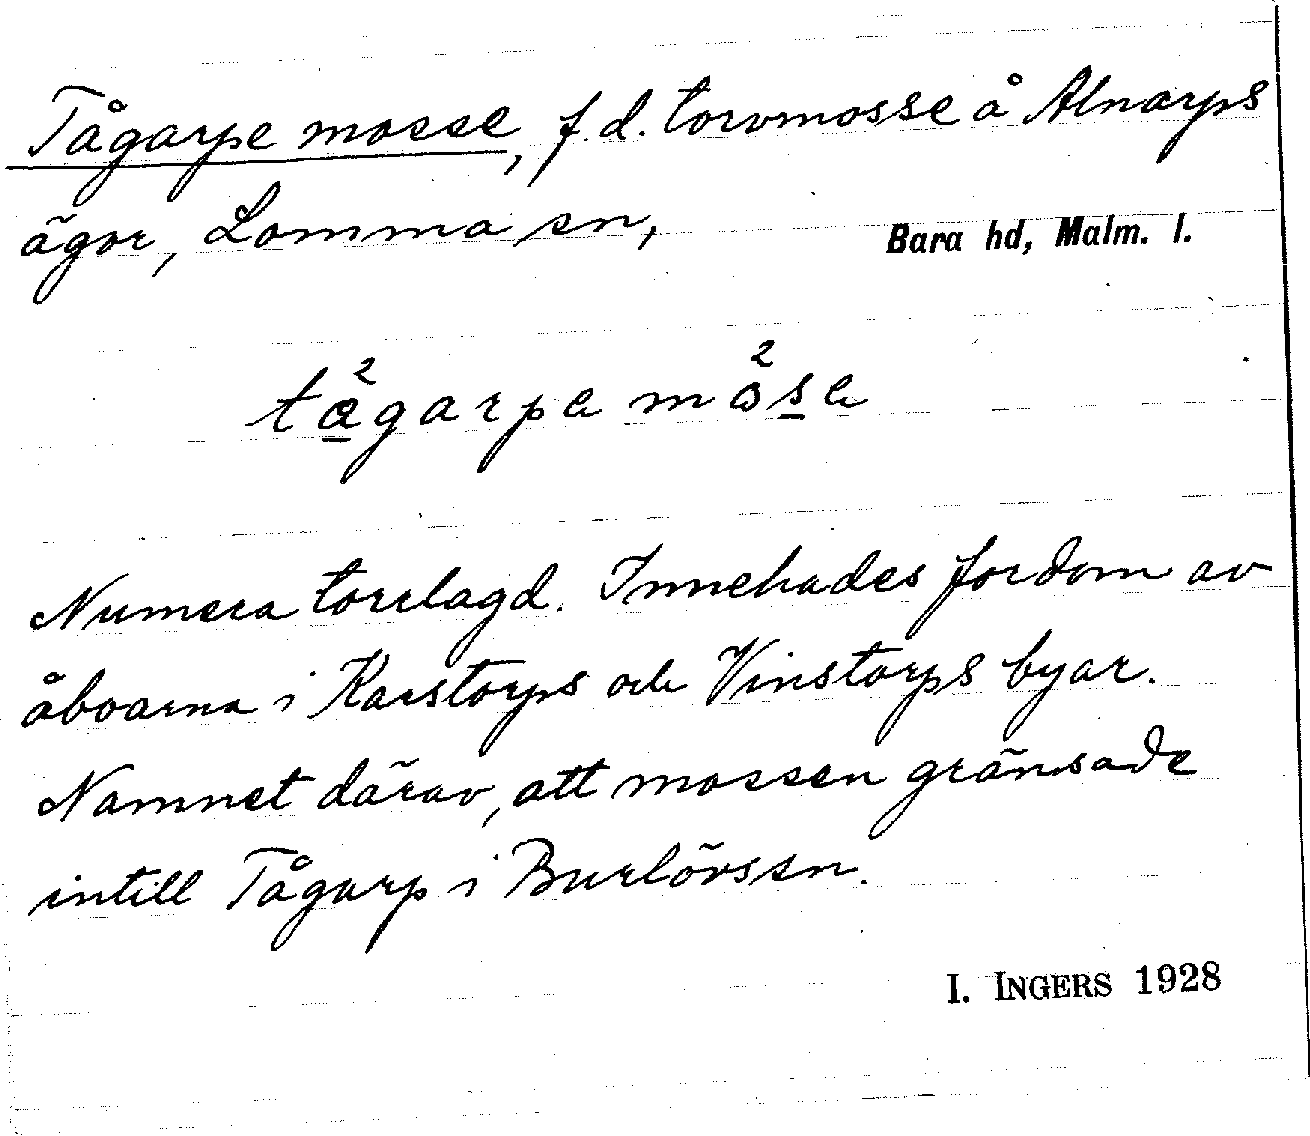 Tågarpe mosse, f.d. torvmosse å Alnarps
ägor, Lomma sn, Bara hd, Malm. l.
tågarpe måse
Numera torrlagd. Innehades fordom av
åboarna i Karstorps och Vinstorps byar.
Namnet därav, att mossen gränsade
intill Tågarp i Burlövs sn.
I. INGERS 1928